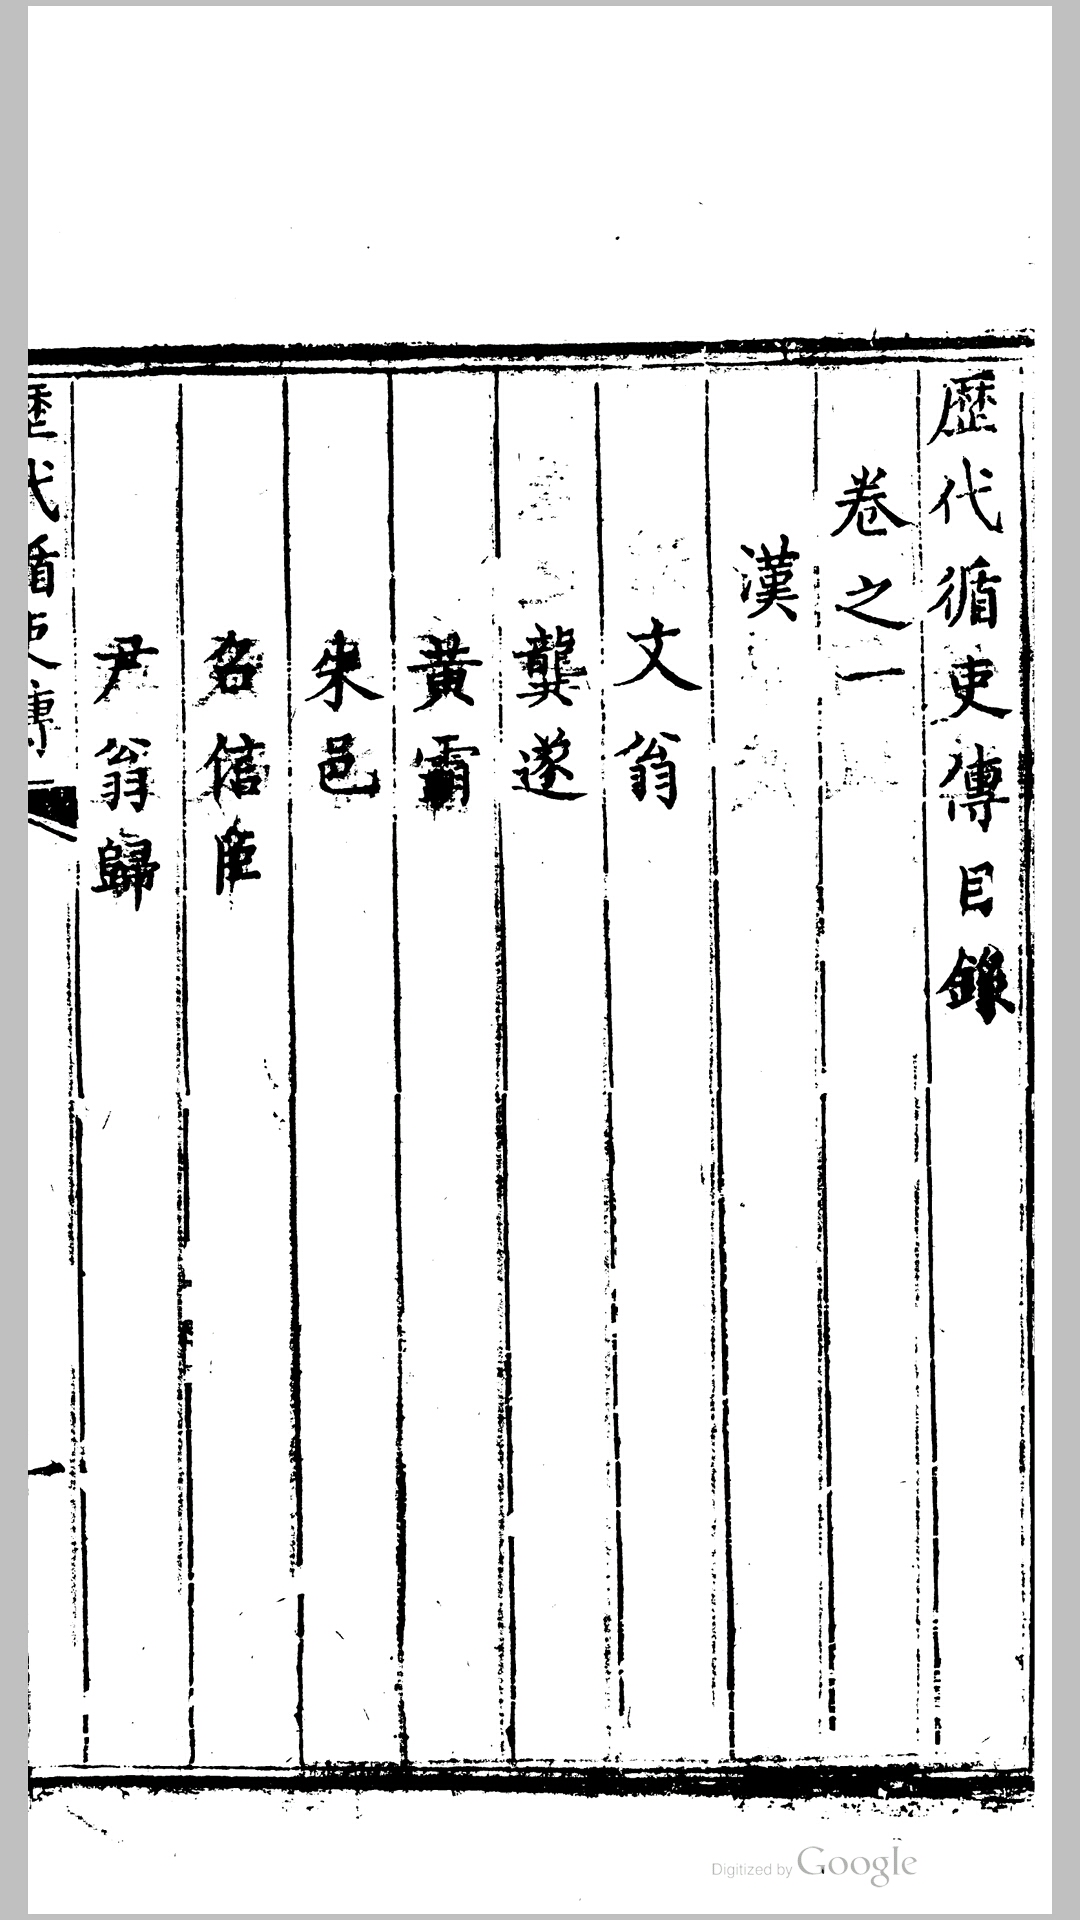 歷代循吏傳目錄
卷之一
漢
文翁
龔遂
黃霸
朱邑
召信臣
尹翁歸
歷代循吏傳
一
Digitized by Google